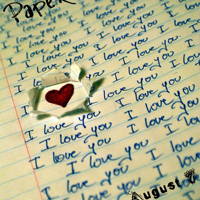 Paper
I love you I love you
I love you I love you I love you
I love you I love you I love you
I love you I love you I love you
I love you I love you
I love you I love you
I love you I love you I love you
I love you I love you I love you
I love you I love you I love you
I love you I love you I love you
I love you I love you
I love you
August